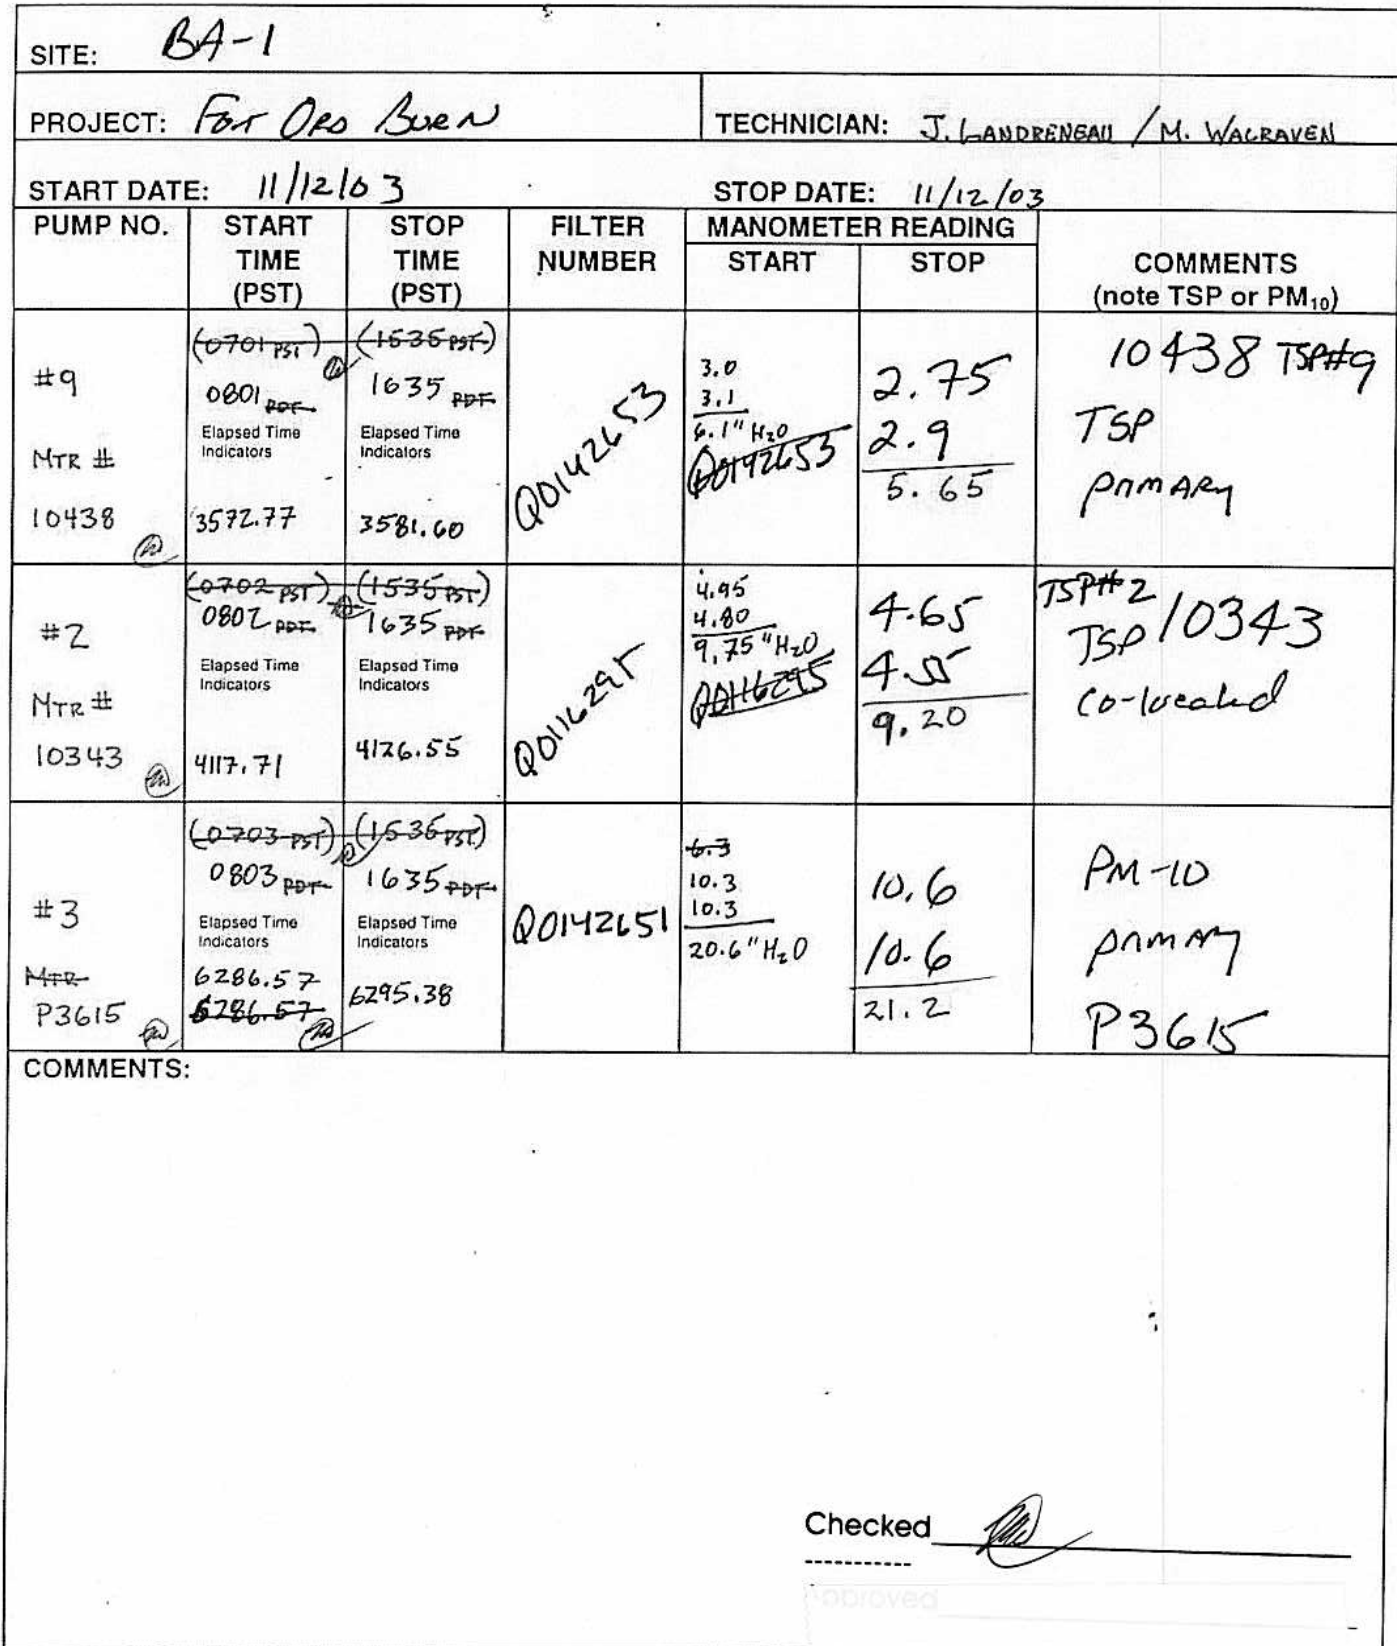 SITE: BA-1
PROJECT: Fort Ord Burn
TECHNICIAN: J. LANDRENEAU / M. WALRAVEN
START DATE: 11/12/03
STOP DATE: 11/12/03
PUMP NO.
START TIME (PST)
STOP TIME (PST)
FILTER NUMBER
MANOMETER READING
START
STOP
COMMENTS
(note TSP or PM10)
#9
MTR #
10438
(0701 PST)
0801 PDT
Elapsed Time
Indicators
3572.77
(1535 PST)
1635 PDT
Elapsed Time
Indicators
3581.60
Q0142653
3.0
3.1
6.1" H2O
Q0142653
2.75
2.9
5.65
10438 TSP#9
TSP
primary
#2
MTR #
10343
(0702 PST)
0802 PDT
Elapsed Time
Indicators
4117.71
(1535 PST)
1635 PDT
Elapsed Time
Indicators
4126.55
Q0116295
4.95
4.80
9.75 "H2O
Q0116295
4.65
4.55
9.20
TSP#2
TSP 10343
Co-located
#3
MTR
P3615
(0703 PST)
0803 PDT
Elapsed Time
Indicators
6286.57
6286.57
(1535 PST)
1635 PDT
Elapsed Time
Indicators
6295.38
Q0142651
6.3
10.3
10.3
20.6 "H2O
10.6
10.6
21.2
PM-10
primary
P3615
COMMENTS:
Checked
Approved